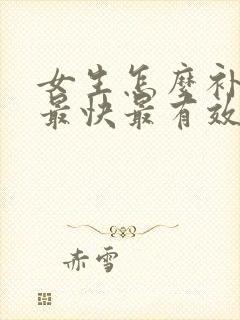 女生怎麼补
最快最有效
赤雪